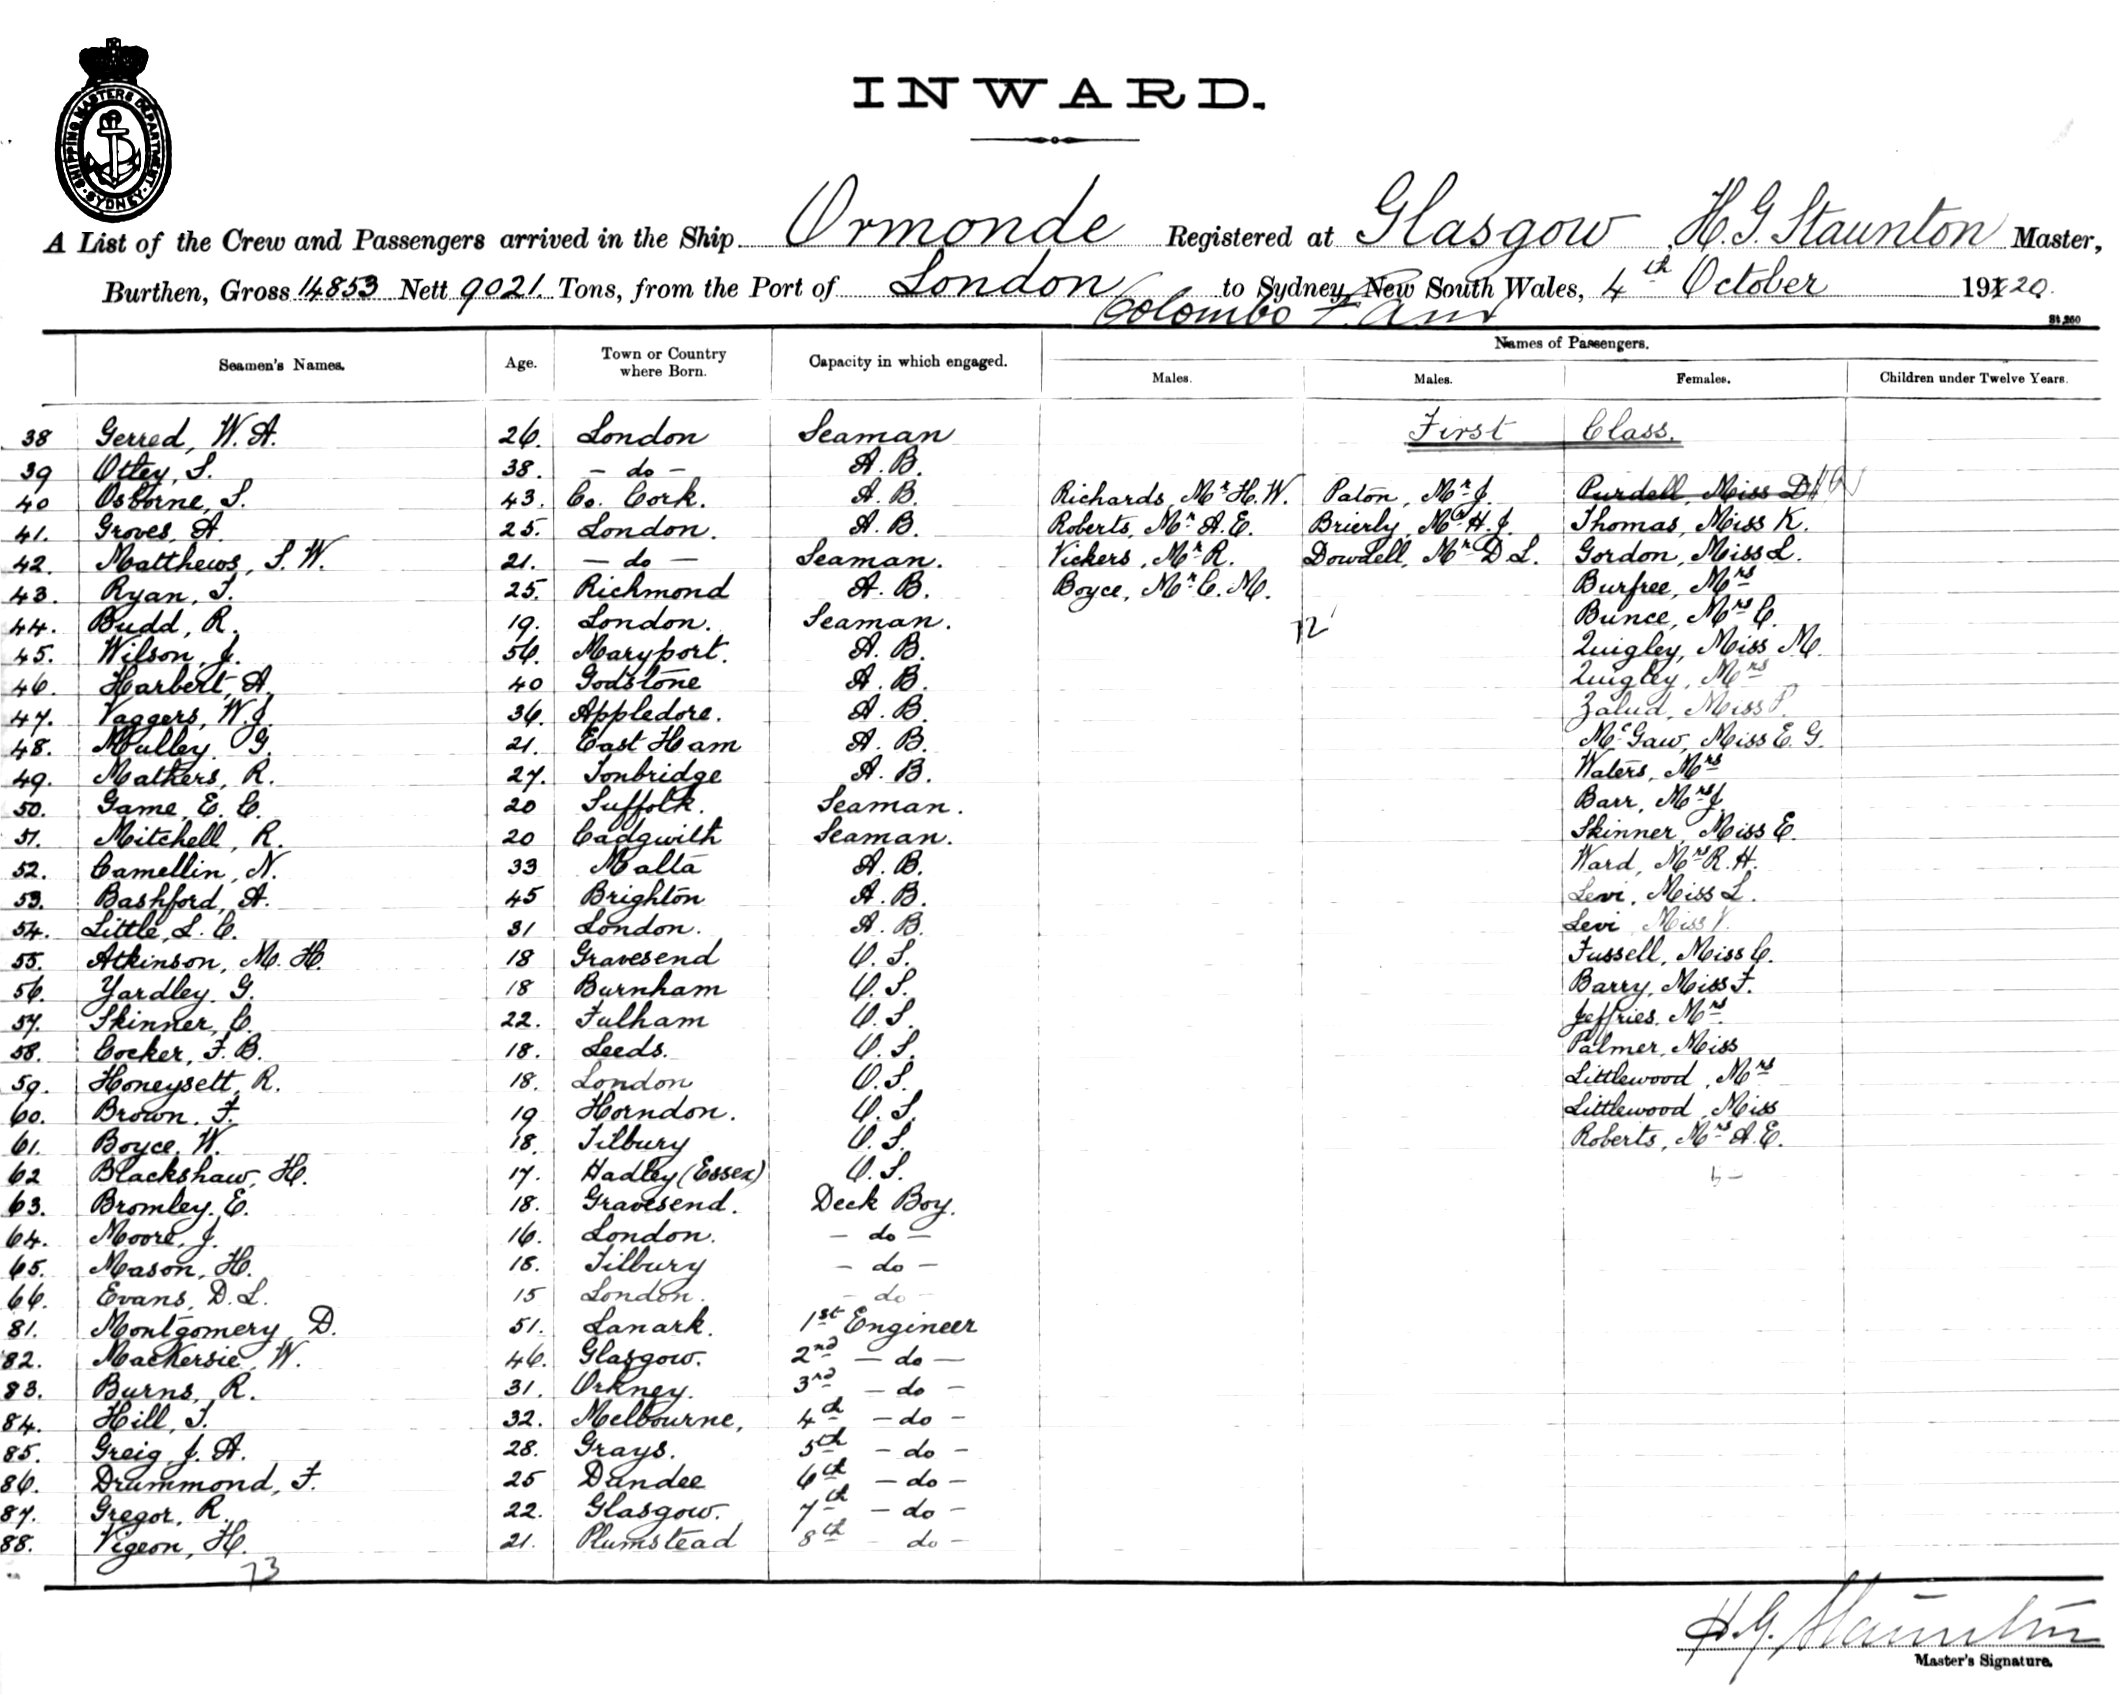 SHIPPING MASTERS DEPARTMENT SYDNEY
INWARD.
A List of the Crew and Passengers arrived in the Ship Ormonde Registered at Glasgow, H.G. Staunton Master,
Burthen, Gross 14853 Nett 9021. Tons, from the Port of London to Sydney, New South Wales, 4th October 1920.
Colombo
St.260
Seamen's Names. Age. Town or Country where Born. Capacity in which engaged. Names of Passengers.
Males. Males. Females. Children under Twelve Years.
38 Gerred, W. A. 26. London Seaman First Class.
39 Otley, S. 38. – do – A. B.
40 Osborne, S. 43. Co. Cork. A. B. Richards, Mr H. W. Paton, Mr J. Purdell, Miss D
41. Groves, A. 25. London. A. B. Roberts, Mr A. E. Brierly, Mr H. J. Thomas, Miss K.
42. Matthews, S. W. 21. – do – Seaman. Vickers, Mr R. Dowdell, Mr D L. Gordon, Miss L.
43. Ryan, T. 25. Richmond A. B. Boyce, Mr C. M. Burfree, Mrs
44. Budd, R. 19. London. Seaman. 72 Bunce, Mrs C.
45. Wilson, J. 56. Maryport. A. B. Quigley, Miss M.
46. Harbert, A. 40 Godstone A. B. Quigley, Mrs
47. Vaggers, W. J. 36. Appledore. A. B. Zalud, Miss P.
48. Mulley. G. 21. East Ham A. B. McGaw, Miss E. G.
49. Mathers, R. 27. Tonbridge A. B. Waters, Mrs
50. Game, E. C. 20 Suffolk. Seaman. Barr, Mrs J.
51. Mitchell, R. 20 Cadgwith Seaman. Skinner, Miss E.
52. Camellin, N. 33 Malta A. B. Ward, Mrs R. H.
53. Bashford, A. 45 Brighton A. B. Levi, Miss L.
54. Little, L. C. 31 London. A. B. Levi Miss V.
55. Atkinson, M. H. 18 Gravesend O. S. Fussell, Miss C.
56. Yardley. G. 18 Burnham O. S. Barry, Miss F.
57. Skinner, C. 22. Fulham O. S. Jeffries. Mrs.
58. Cocker, F. B. 18. Leeds. O. S. Palmer, Miss
59. Honeysett, R. 18. London O. S. Littlewood, Mrs
60. Brown, F. 19 Horndon. O. S. Littlewood, Miss
61. Boyce, W. 18. Tilbury O. S. Roberts, Mrs A. E.
62 Blackshaw, H. 17. Hadley (Essex) O. S.
63. Bromley. E. 18. Gravesend. Deck Boy.
64. Moore, J. 16. London. – do –
65. Mason, H. 18. Tilbury – do –
66. Evans, D. L. 15 London. – do –
81. Montgomery, D. 51. Lanark. 1st Engineer
82. MacKersie, W. 46. Glasgow. 2nd – do –
83. Burns, R. 31. Orkney. 3rd – do –
84. Hill, T. 32. Melbourne, 4th – do –
85. Greig, J. A. 28. Grays. 5th – do –
86. Drummond, F. 25 Dundee 6th – do –
87. Gregor, R. 22. Glasgow. 7th – do –
88. Vigeon, H. 21. Plumstead 8th – do –
73
H. G. Staunton
Master's Signature.